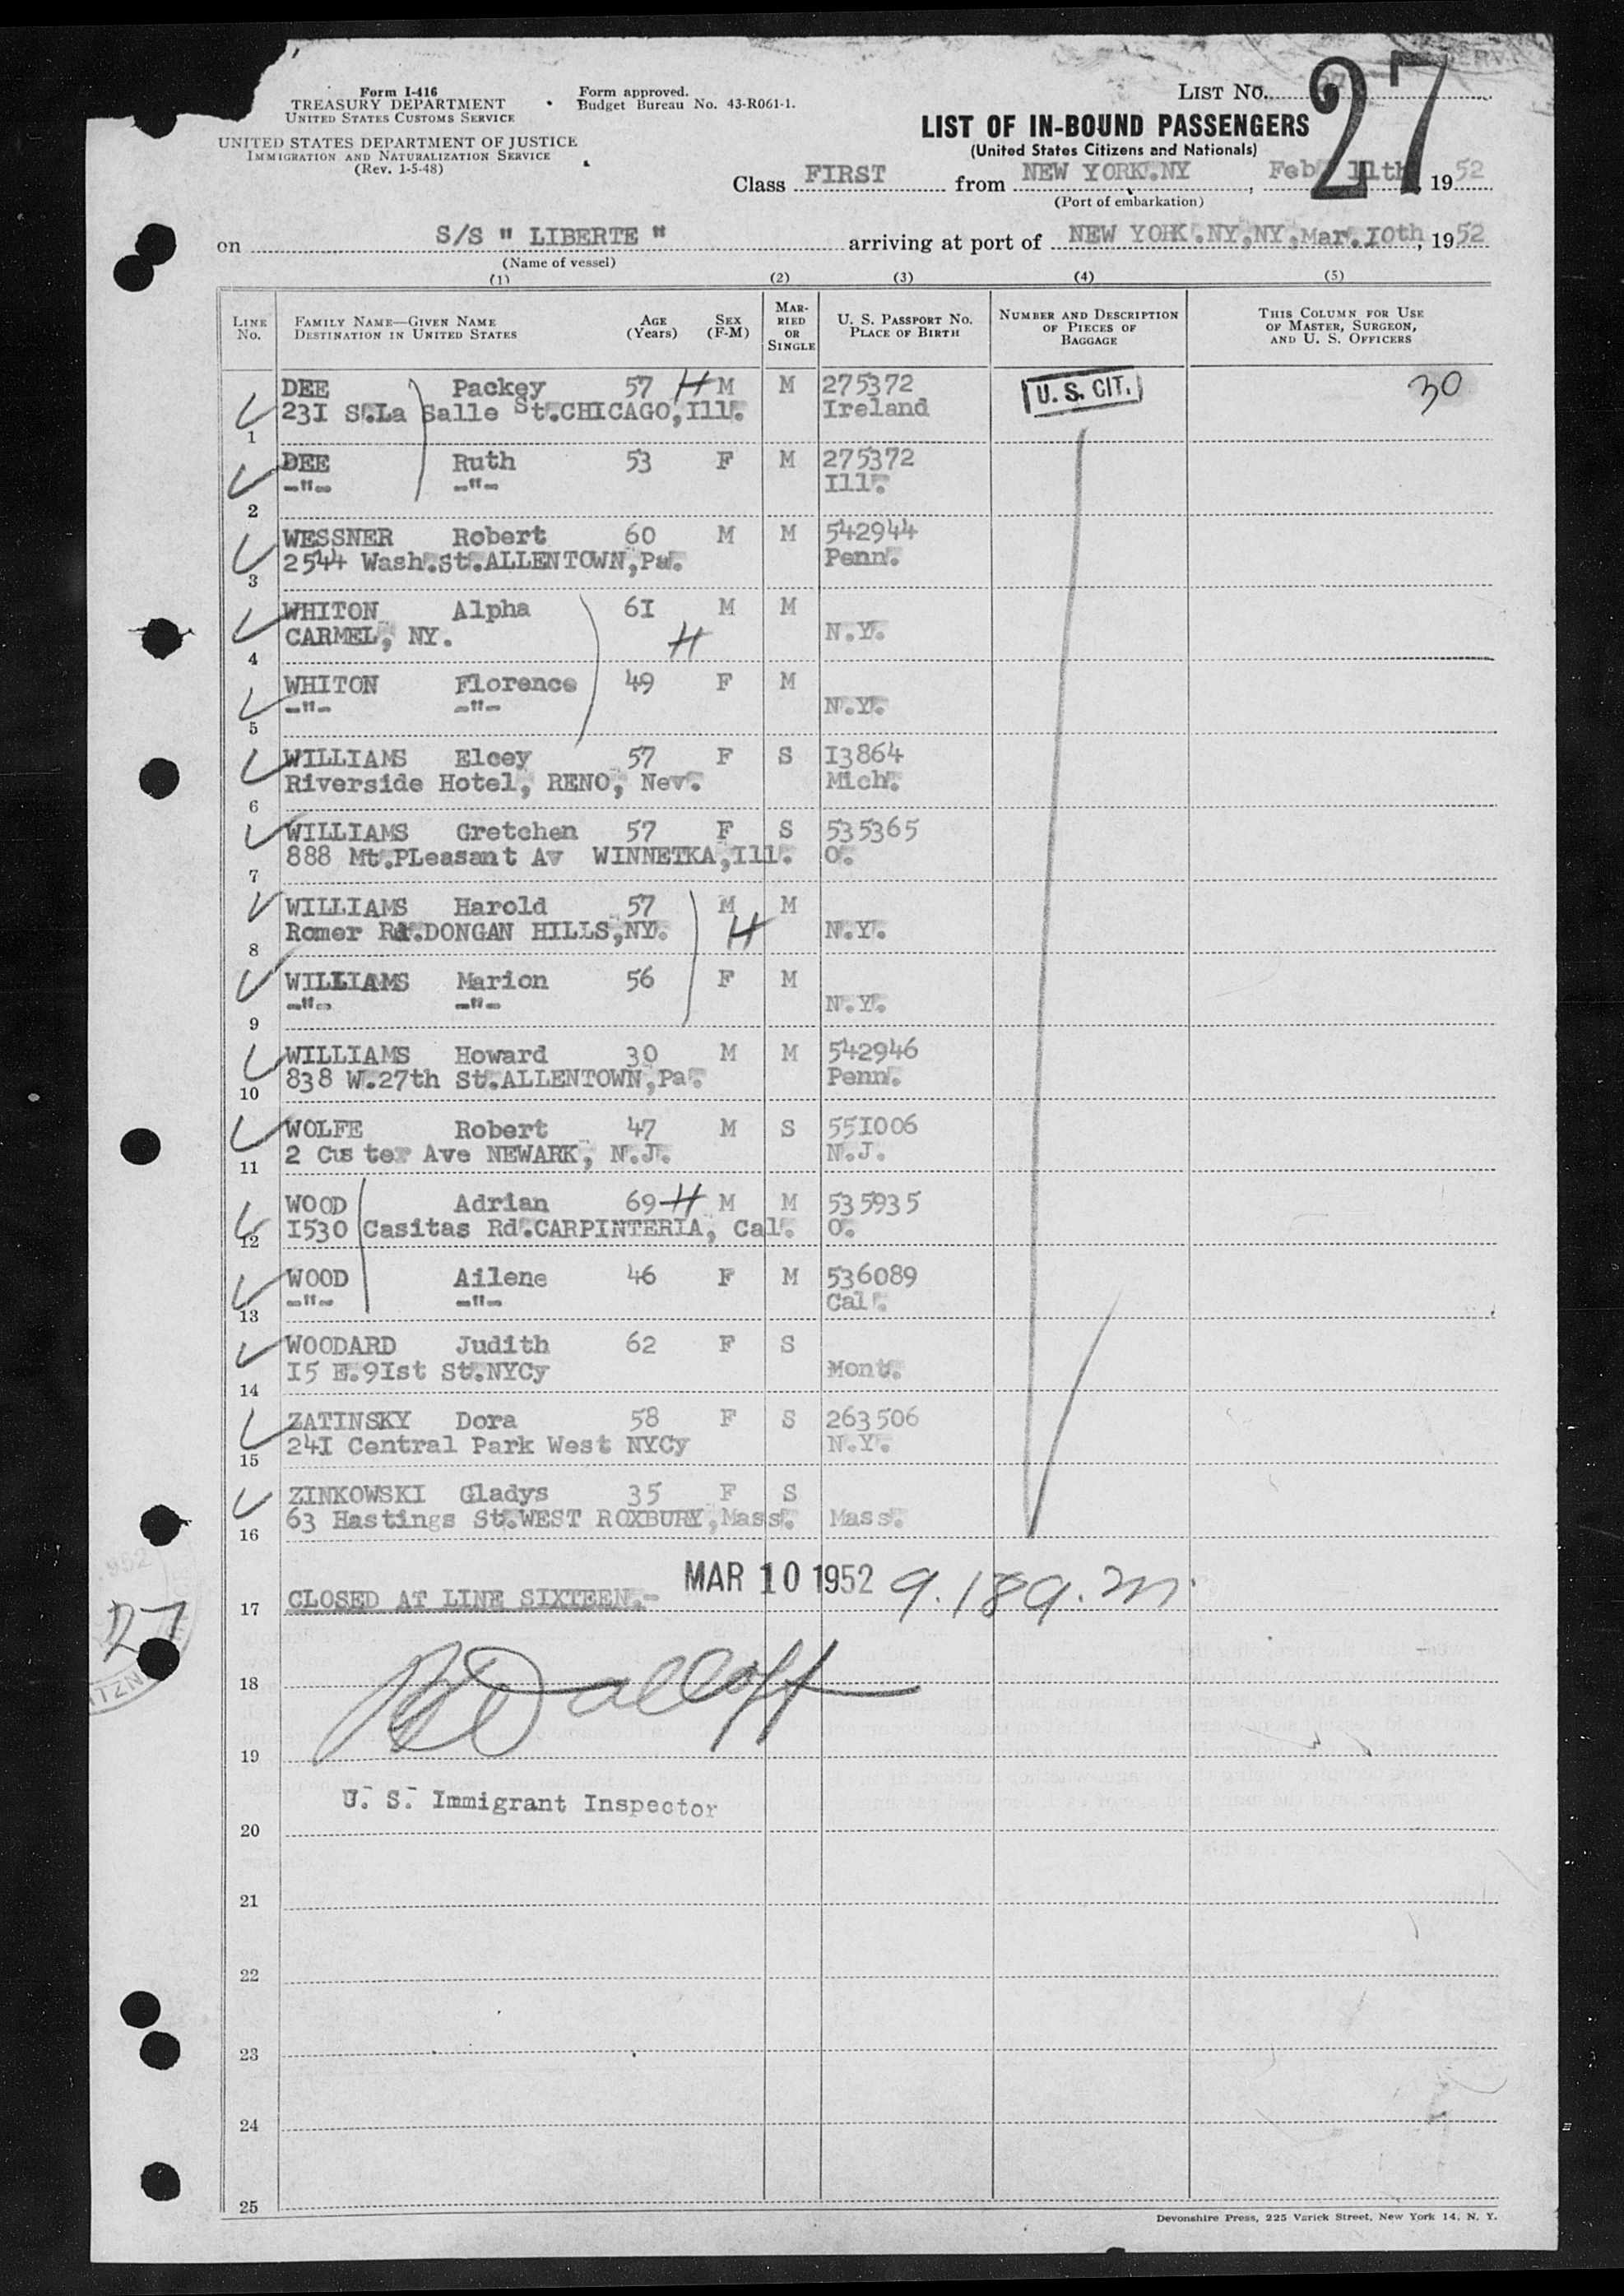 Form I-416
TREASURY DEPARTMENT
UNITED STATES CUSTOMS SERVICE
UNITED STATES DEPARTMENT OF JUSTICE
IMMIGRATION AND NATURALIZATION SERVICE
(Rev. 1-5-48)
Form approved.
Budget Bureau No. 43-R061-1.
LIST NO. 27
LIST OF IN-BOUND PASSENGERS
(United States Citizens and Nationals)
Class FIRST from NEW YORK.NY, Feb 11th, 1952
(Port of embarkation)
on S/S " LIBERTE " arriving at port of NEW YOHK.NY,NY,Mar.I0th, 1952
(Name of vessel)
(1) (2) (3) (4) (5)
LINE NO. FAMILY NAME—GIVEN NAME DESTINATION IN UNITED STATES AGE (Years) SEX (F-M) MARRIED OR SINGLE U. S. PASSPORT NO. PLACE OF BIRTH NUMBER AND DESCRIPTION OF PIECES OF BAGGAGE THIS COLUMN FOR USE OF MASTER, SURGEON, AND U. S. OFFICERS
DEE Packey 57 H M M 275372 U. S. CIT. 30
23I S.La Salle St.CHICAGO,Ill. Ireland
1
DEE Ruth 53 F M 275372
-"- -"- Ill.
2
WESSNER Robert 60 M M 542944
2544 Wash.St.ALLENTOWN,Pa. Penn.
3
WHITON Alpha 6I M M
CARMEL, NY. H N.Y.
4
WHITON Florence 49 F M
-"- -"- N.Y.
5
WILLIAMS Elcey 57 F S I3864
Riverside Hotel, RENO, Nev. Mich.
6
WILLIAMS Gretchen 57 F S 535365
888 Mt.PLeasant Av WINNETKA,Ill. O.
7
WILLIAMS Harold 57 M M
Romer Rd.DONGAN HILLS,NY. H N.Y.
8
WILLIAMS Marion 56 F M
-"- -"- N.Y.
9
WILLIAMS Howard 30 M M 542946
838 W.27th St.ALLENTOWN,Pa. Penn.
10
WOLFE Robert 47 M S 55I006
2 Custer Ave NEWARK, N.J. N.J.
11
WOOD Adrian 69 H M M 535935
I530 Casitas Rd.CARPINTERIA, Cal. O.
12
WOOD Ailene 46 F M 536089
-"- -"- Cal.
13
WOODARD Judith 62 F S
I5 E.9Ist St.NYCy Mont.
14
ZATINSKY Dora 58 F S 263506
24I Central Park West NYCy N.Y.
15
ZINKOWSKI Gladys 35 F S
63 Hastings St.WEST ROXBURY,Mass. Mass.
16
MAR 10 1952 9.18 a.m.
17 CLOSED AT LINE SIXTEEN.-
27
18
19
U. S. Immigrant Inspector
20
21
22
23
24
25
Devonshire Press, 225 Varick Street, New York 14, N. Y.